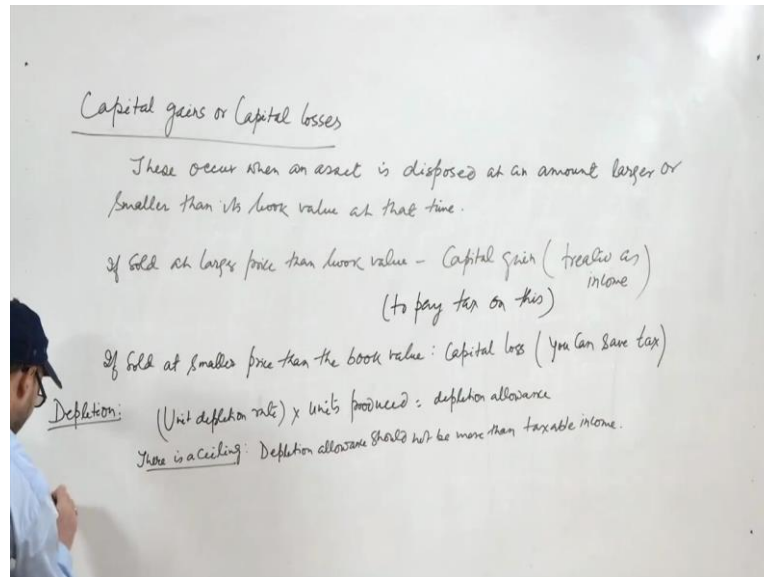 Capital gains or Capital losses
These occur when an asset is disposed at an amount larger or
smaller than its book value at that time.
If sold at larger price than book value - Capital gain (treated as
income)
(to pay tax on this)
If sold at smaller price than the book value : Capital loss (you can save tax)
Depletion: (Unit depletion rate) x units produced = depletion allowance
There is a ceiling: Depletion allowance should not be more than taxable income.